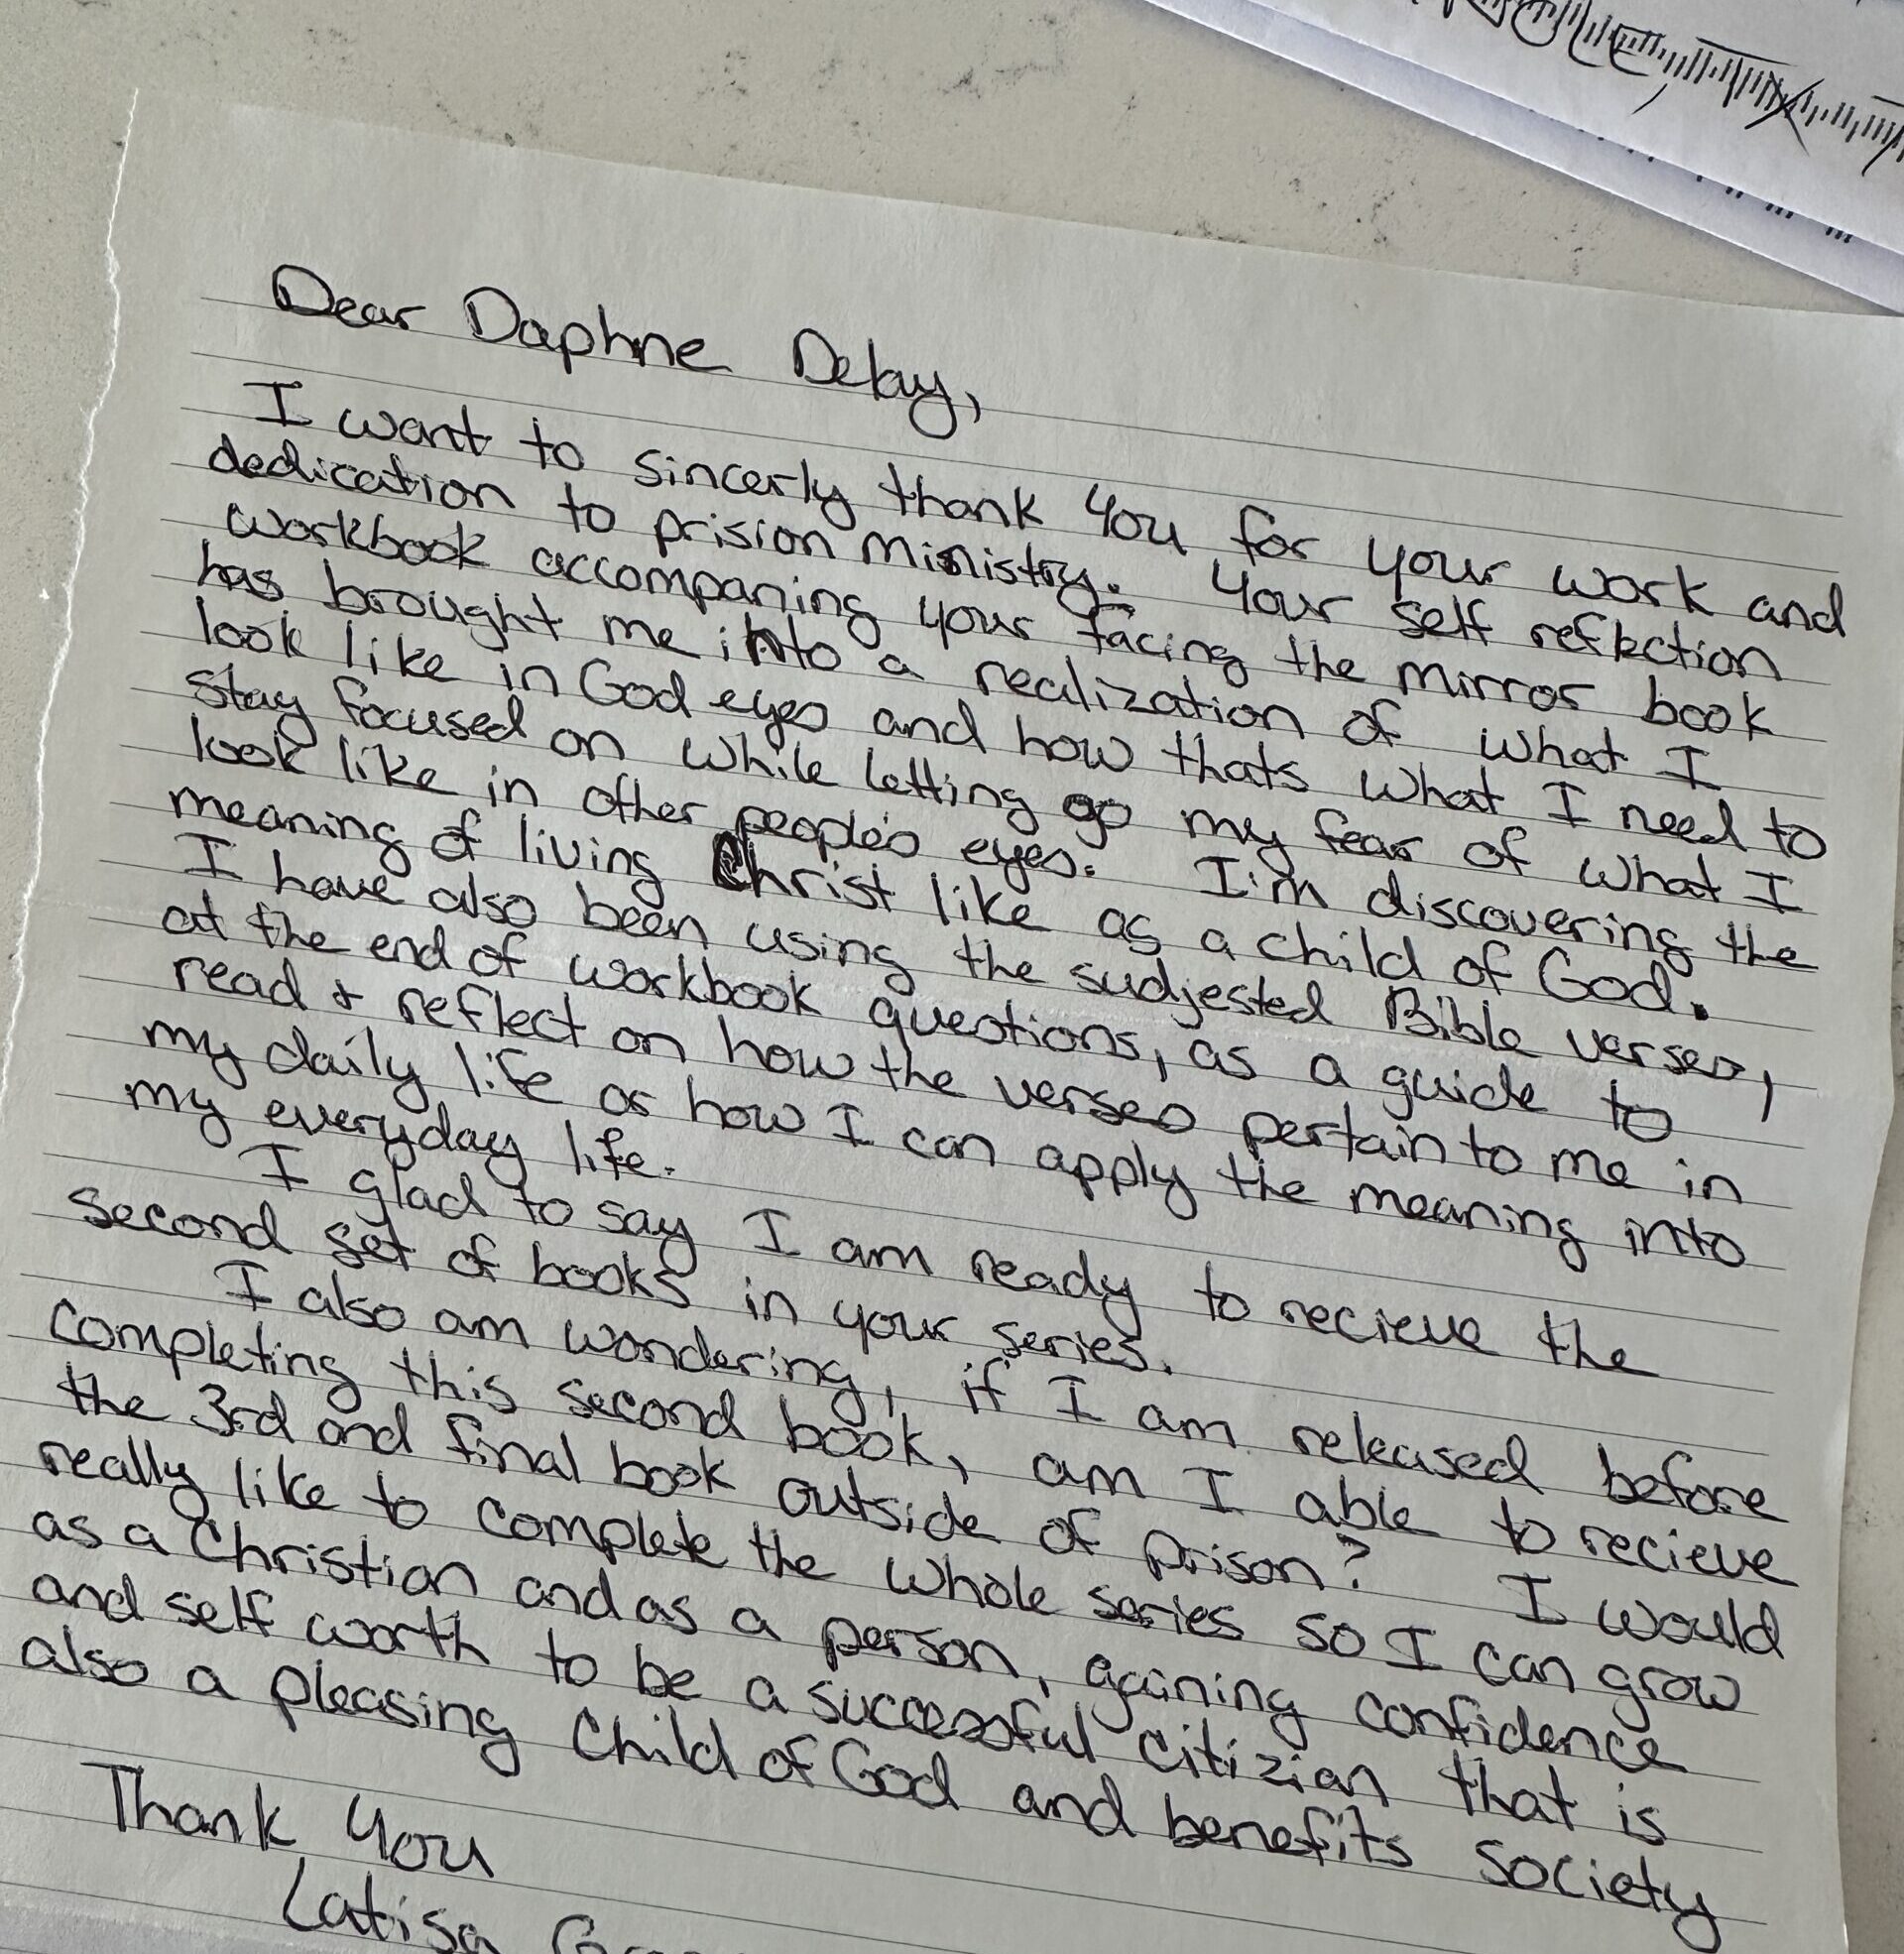 Dear Daphne Delay,
I want to sincerly thank you for your work and
dedication to prision ministry. Your self reflection
workbook accompaning your facing the mirror book
has brought me into a realization of what I
look like in God eyes and how thats what I need to
stay focused on while letting go my fear of what I
look like in other people's eyes. I'm discovering the
meaning of living Christ like as a child of God.
I have also been using the sudjested Bible verses,
at the end of workbook questions, as a guide to
read + reflect on how the verses pertain to me in
my daily life or how I can apply the meaning into
my everyday life.
I glad to say I am ready to recieve the
second set of books in your series.
I also am wondering, if I am released before
completing this second book, am I able to recieve
the 3rd and final book outside of prison? I would
really like to complete the whole series so I can grow
as a Christian and as a person, gaining confidence
and self worth to be a successful citizian that is
also a pleasing Child of God and benefits society
Thank You
Latisa